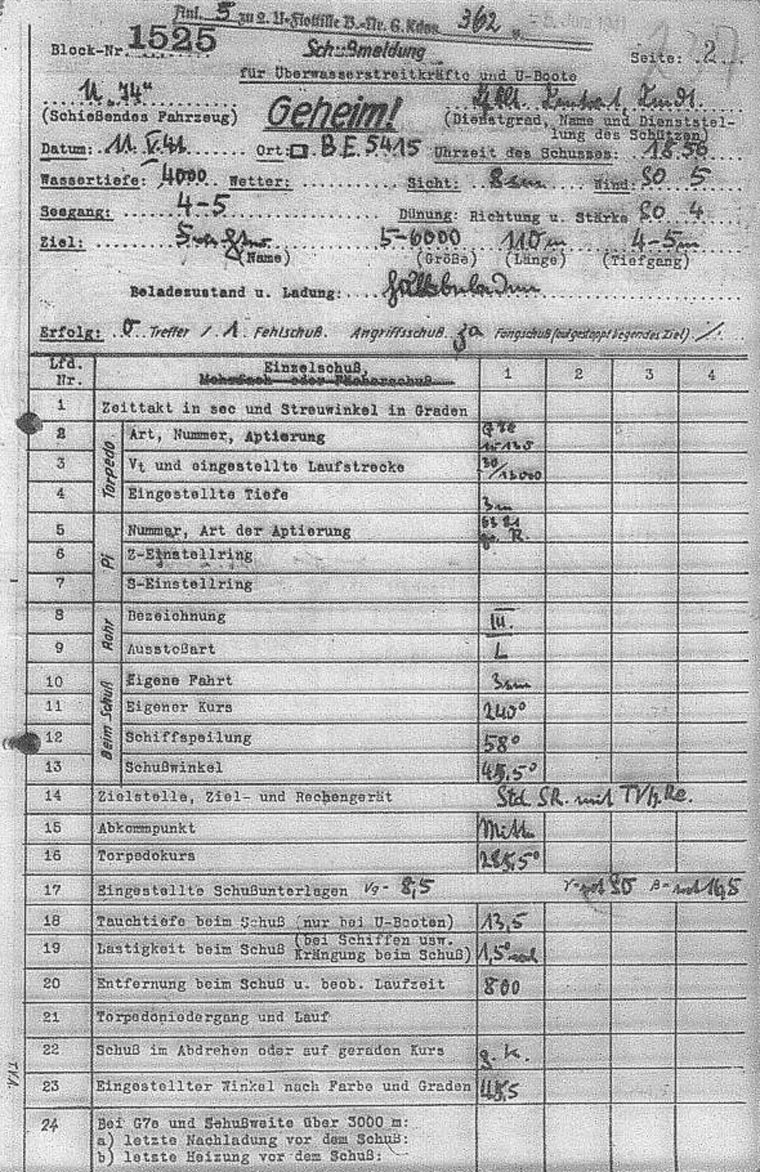 Anl. 5 zu 2. U-Flottille B.-Nr. G. Kdos. 362
Block-Nr. 1525 Schußmeldung Seite: 2
für Überwasserstreitkräfte und U-Boote
U "74"
(Schießendes Fahrzeug) Geheim! (Dienstgrad, Name und Dienststel-
lung des Schützen)
Datum: 11. V. 41 Ort: BE 5415 Uhrzeit des Schusses: 18.56
Wassertiefe: 4000 Wetter: Sicht: 8 sm Wind: SO 5
Seegang: 4-5 Dünung: Richtung u. Stärke SO 4
Ziel: 5-6000 110 m 4-5m
(Name) (Größe) (Länge) (Tiefgang)
Beladezustand u. Ladung:
Erfolg: 0 Treffer / 1 Fehlschuß. Angriffsschuß ja Fangschuß (auf gestoppt liegendes Ziel) /
Lfd. Nr. Einzelschuß, Mehrfach- oder Fächerschuß 1 2 3 4
1 Zeittakt in sec und Streuwinkel in Graden
Torpedo
2 Art, Nummer, Aptierung
3 Vt und eingestellte Laufstrecke 30/13000
4 Eingestellte Tiefe 3m
Pi
5 Nummer, Art der Aptierung
6 Z-Einstellring
7 S-Einstellring
Rohr
8 Bezeichnung III.
9 Ausstoßart L
Beim Schuß
10 Eigene Fahrt 3sm
11 Eigener Kurs 240°
12 Schiffspeilung 58°
13 Schußwinkel 45,5°
14 Zielstelle, Ziel- und Rechengerät Std. SR. mit TV/g.Re.
15 Abkommpunkt Mitte
16 Torpedokurs 285,5°
17 Eingestellte Schußunterlagen Vg- 8,5 γ=rot 90 β=rot 16,5
18 Tauchtiefe beim Schuß (nur bei U-Booten) 13,5
19 Lastigkeit beim Schuß (bei Schiffen usw. Krängung beim Schuß) 1,5°
20 Entfernung beim Schuß u. beob. Laufzeit 800
21 Torpedoniedergang und Lauf
22 Schuß im Abdrehen oder auf geraden Kurs g. K.
23 Eingestellter Winkel nach Farbe und Graden 45,5
24 Bei G7e und Schußweite über 3000 m:
a) letzte Nachladung vor dem Schuß:
b) letzte Heizung vor dem Schuß: